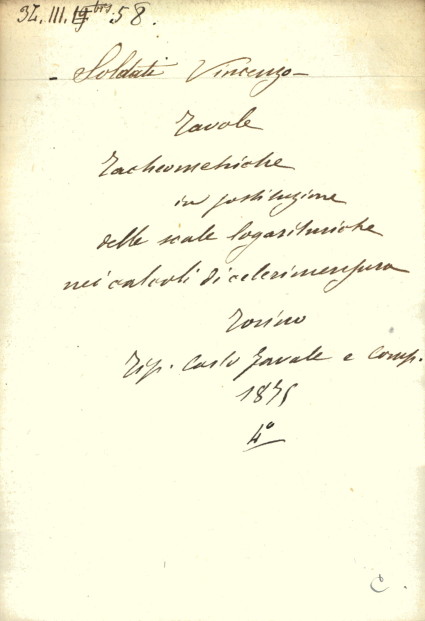 34.III. 58.
- Soldati Vincenzo -
Tavole
Tacheometriche
in sostituzione
delle scale logaritmiche
nei calcoli di celerimensura
Torino
Tip. Carlo Favale e Comp.
1875
4°